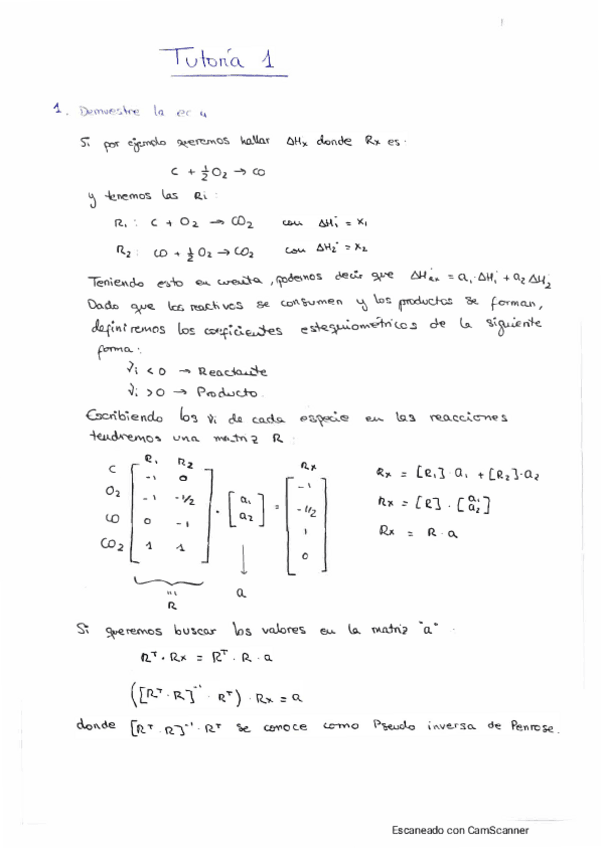 Tutoría 1
1. Demuestre la ec 4
Si por ejemplo queremos hallar ΔHx donde Rx es:
C + ½O2 → CO
y tenemos las Ri:
R1: C + O2 → CO2 con ΔH1° = x1
R2: CO + ½O2 → CO2 con ΔH2° = x2
Teniendo esto en cuenta, podemos decir que ΔH°Rx = a1·ΔH1° + a2ΔH2°
Dado que los reactivos se consumen y los productos se forman,
definiremos los coeficientes estequiométricos de la siguiente
forma:
νi < 0 → Reactante
νi > 0 → Producto.
Escribiendo los νi de cada especie en las reacciones
tendremos una matriz R:
R1 R2 Rx
C [-1 0] [-1] Rx = [R1]·a1 + [R2]·a2
O2 [-1 -1/2] · [a1] = [-1/2] Rx = [R]·[a1 a2]
CO [0 -1] [a2] [1] Rx = R·a
CO2 [1 1] [0]
R a
Si queremos buscar los valores en la matriz "a".
Rᵀ·Rx = Rᵀ·R·a
([Rᵀ·R]⁻¹·Rᵀ)·Rx = a
donde [Rᵀ·R]⁻¹·Rᵀ se conoce como Pseudo inversa de Penrose.
Escaneado con CamScanner